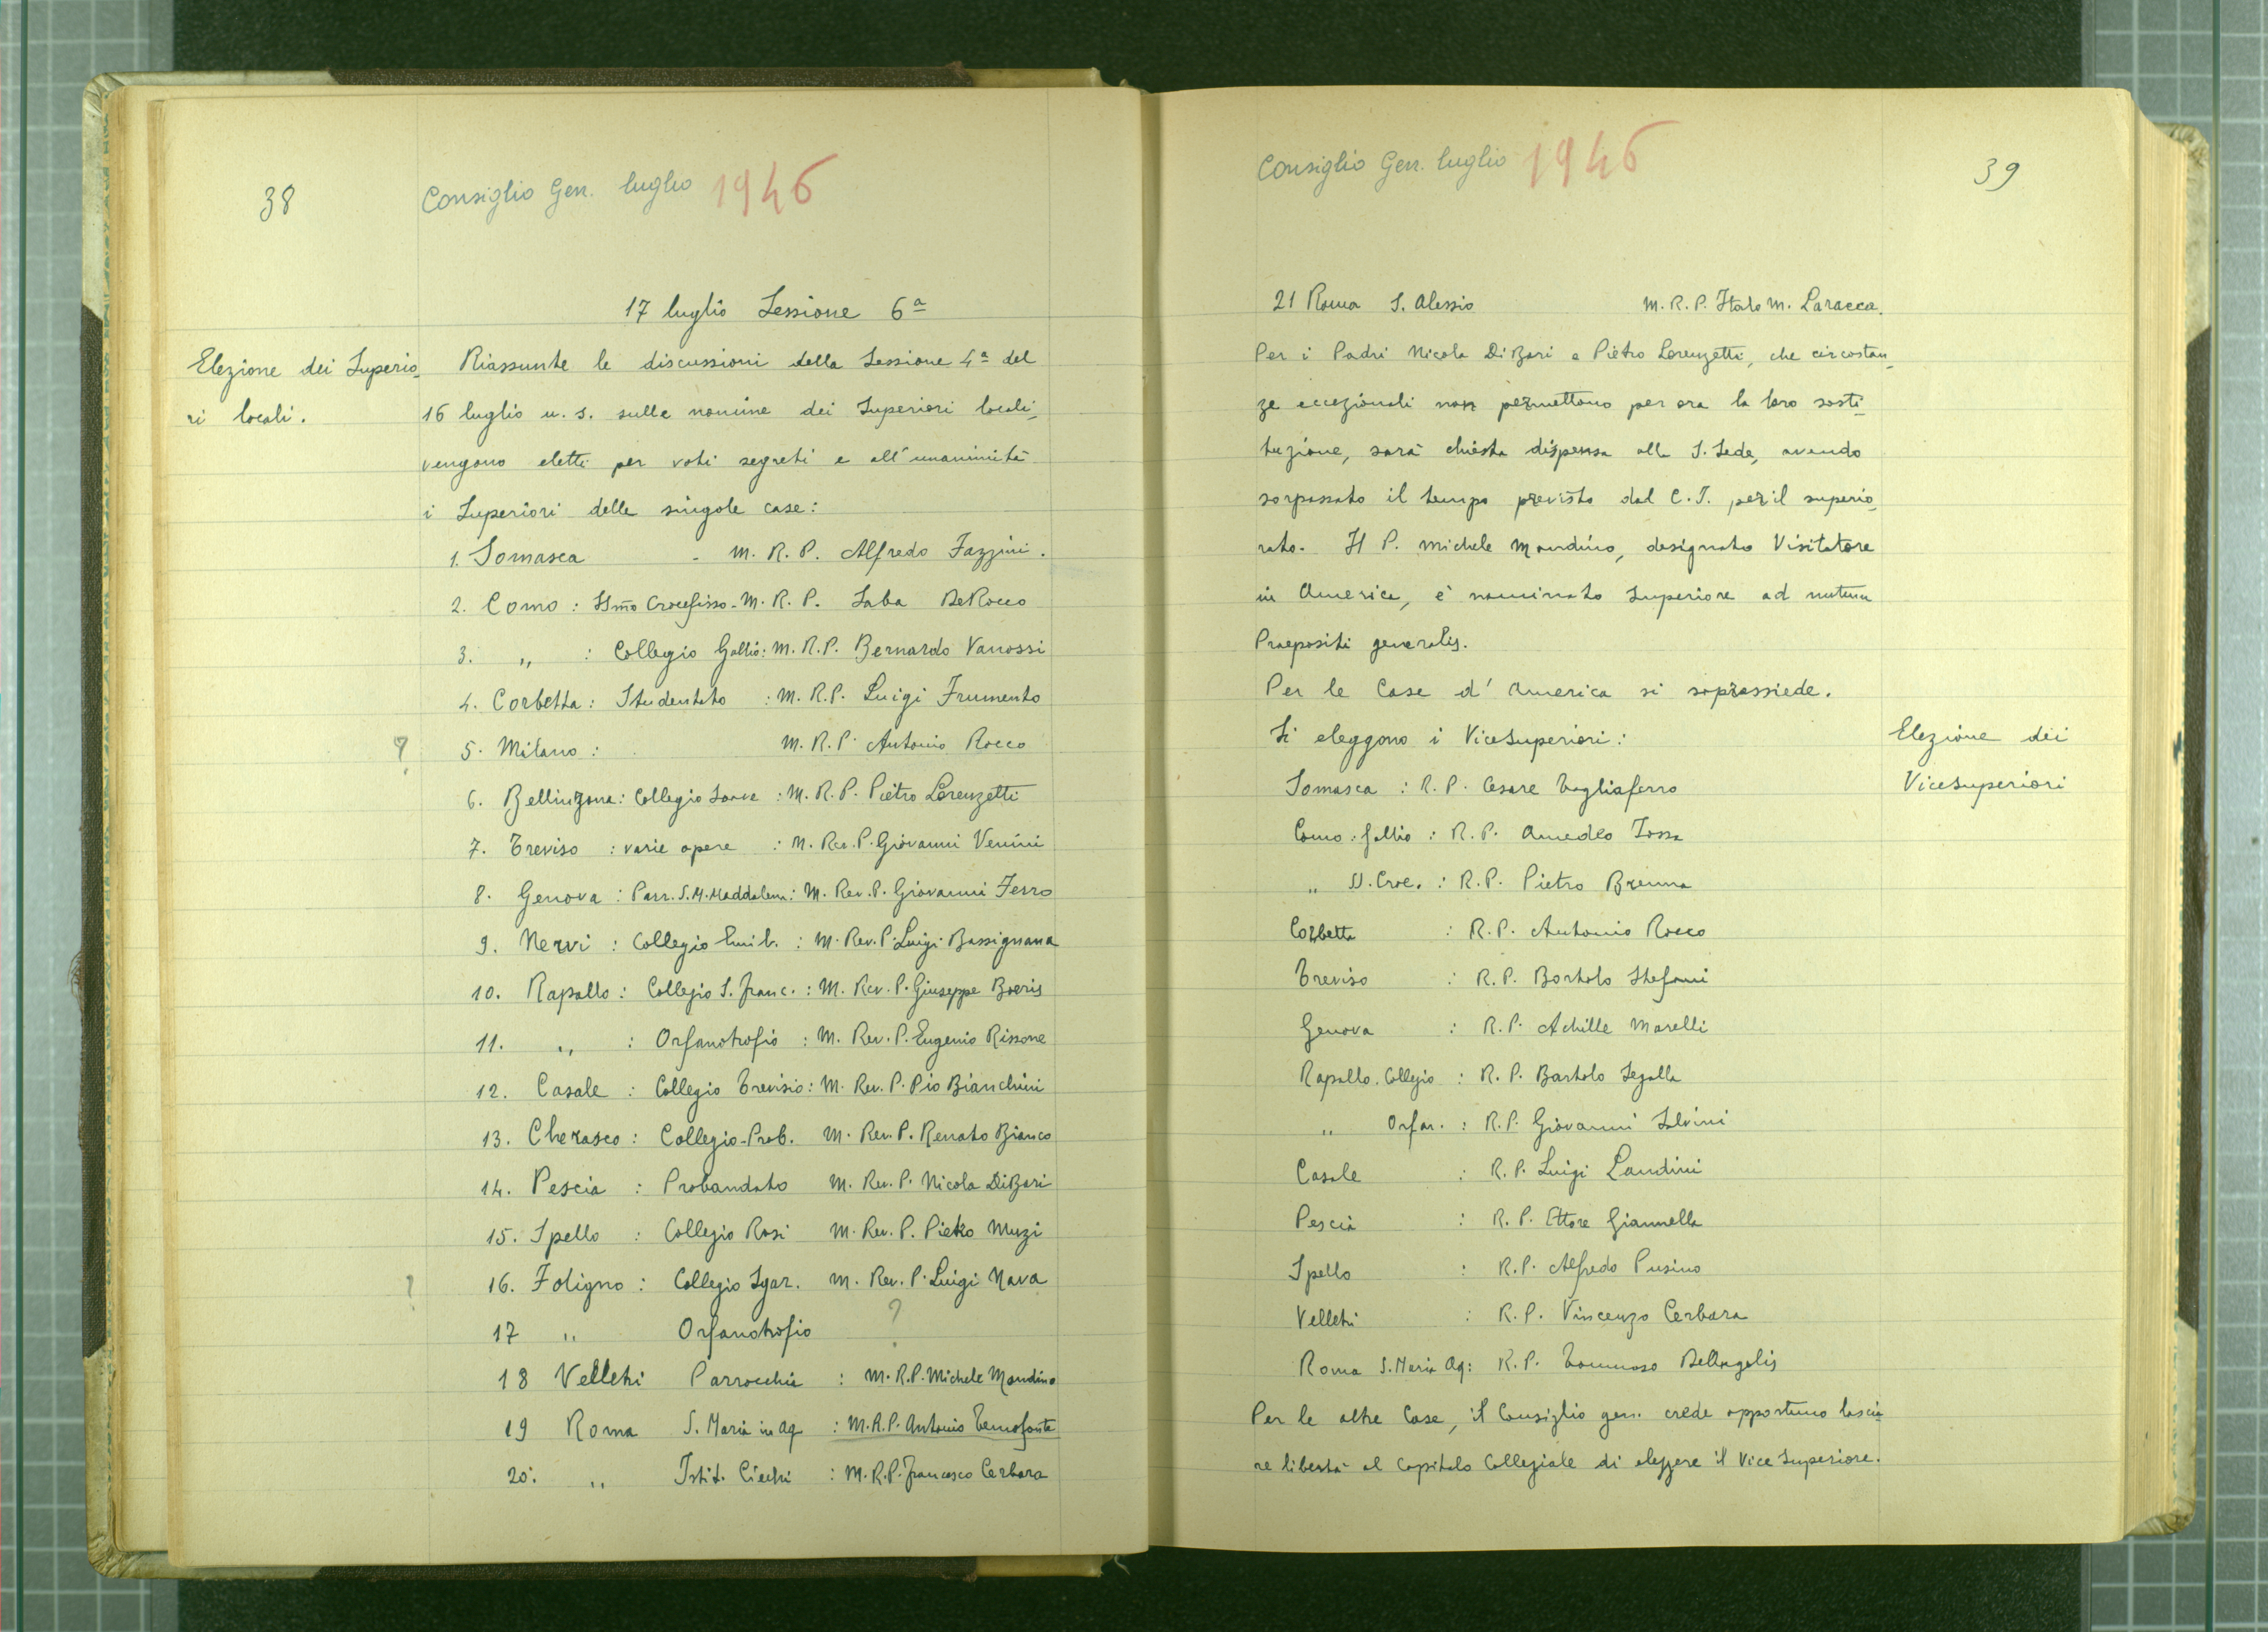 38
Consiglio Gen. luglio 1946
17 luglio Sessione 6ª
Elezione dei Superio-
ri locali.
Riassunte le discussioni della Sessione 4ª del
16 luglio u. s. sulle nomine dei Superiori locali,
vengono eletti per voti segreti e all'unanimità
i Superiori delle singole case:
1. Somasca - M. R. P. Alfredo Fazzini.
2. Como : SSmo Crocefisso - M. R. P. Saba DeRocco
3. " : Collegio Gallio : M. R. P. Bernardo Vanossi
4. Corbetta : Studentato : M. R. P. Luigi Frumento
? 5. Milano : M. R. P. Antonio Rocco
6. Bellinzona : Collegio Soave : M. R. P. Pietro Lorenzetti
7. Treviso : varie opere : M. Rev. P. Giovanni Venini
8. Genova : Parr. S. M. Maddalena : M. Rev. P. Giovanni Ferro
9. Nervi : Collegio Emil. : M. Rev. P. Luigi Bassignana
10. Rapallo : Collegio S. Franc. : M. Rev. P. Giuseppe Boeris
11. " : Orfanotrofio : M. Rev. P. Eugenio Rissone
12. Casale : Collegio Trevisio : M. Rev. P. Pio Bianchini
13. Cherasco : Collegio-Prob. M. Rev. P. Renato Bianco
14. Pescia : Probandato M. Rev. P. Nicola DiBari
15. Spello : Collegio Rosi M. Rev. P. Pietro Muzi
? 16. Foligno : Collegio Sgar. M. Rev. P. Luigi Nava
17 " Orfanotrofio ?
18 Velletri Parrocchia : M. R. P. Michele Mondino
19 Roma S. Maria in Aq. : M. R. P. Antonio Temofonte
20. " Istit. Ciechi : M. R. P. Francesco Cerbara
Consiglio Gen. luglio 1946
39
21 Roma S. Alessio M. R. P. Italo M. Laracca.
Per i Padri Nicola DiBari e Pietro Lorenzetti, che circostan-
ze eccezionali non permettono per ora la loro sosti-
tuzione, sarà chiesta dispensa alla S. Sede, avendo
sorpassato il tempo previsto dal C. J. per il superio-
rato. Il P. Michele Mondino, designato Visitatore
in America, è nominato Superiore ad nutum
Praepositi generalis.
Per le Case d' America si soprassiede.
Si eleggono i ViceSuperiori :
Elezione dei
ViceSuperiori
Somasca : R. P. Cesare Tagliaferro
Como : Gallio : R. P. Amedeo Iossa
" SS. Croc. : R. P. Pietro Brenna
Corbetta : R. P. Antonio Rocco
Treviso : R. P. Bortolo Stefani
Genova : R. P. Achille Marelli
Rapallo. Collegio : R. P. Bartolo Segalla
" Orfan. : R. P. Giovanni Salvini
Casale : R. P. Luigi Landini
Pescia : R. P. Ettore Giannella
Spello : R. P. Alfredo Pusino
Velletri : R. P. Vincenzo Cerbara
Roma S. Maria Aq : R. P. Tommaso DeAngelis
Per le altre Case, il Consiglio gen. crede opportuno lascia-
re libertà al Capitolo Collegiale di eleggere il Vice Superiore.